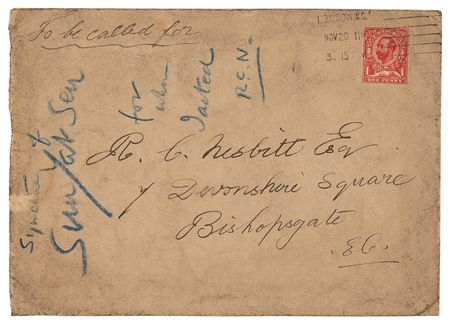 To be called for
LONDON. W.C.
NOV 20 11
3. 15 P
ONE PENNY
R. C. Nesbitt Esq
7 Devonshire Square
Bishopsgate
E.C.
Signature of
Sun Yat Sen
for
whom
I acted
R.C.N.